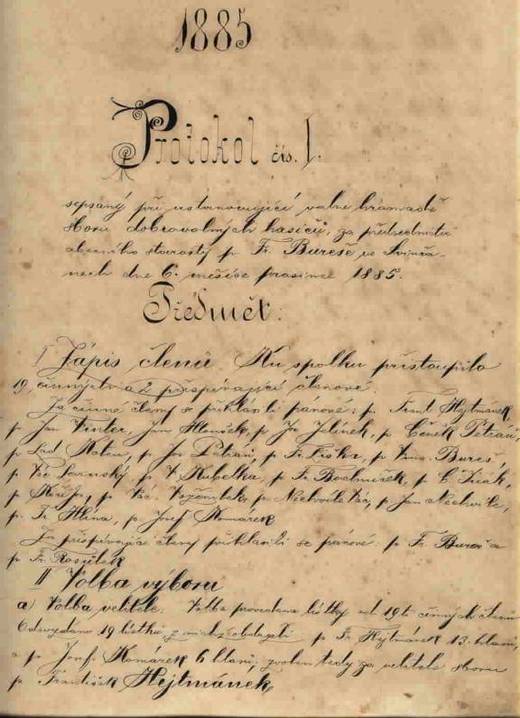 1885
Protokol čís. I.
sepsaný při ustanovující valné hromadě
sboru dobrovolných hasičů, za předsednictví
obecního starosty p. Fr. Bureše ve Svinča-
nech dne 6. měsíce prosince 1885.
Předmět:
I Zápis členů. Ku spolku přistoupilo
19 činných a 2 přispívající členové.
Za činné členy se přihlásili pánové: p. Frant. Hejtmánek,
p. Jan Vinter, Jan Hloušek, p. Jos. Jelínek, p. Čeněk Petráň,
p. Lad. p. Jos. Petráň, p. Fr. p. Vinc. Bureš,
p. Vác. p. V. Kubelka, p. Fr. p. Č.
p. p. Vác. p. Nechvíle Vác., p. Jan Nechvíle,
p. Fr. Hlína, p. Josef Komárek
Za přispívající členy přihlásili se pánové p. Fr. Bureš a
p. Fr.
II Volba výboru
a) Volba velitele. Volba provedena lístky od 19ti činných členů
Odevzdáno 19 lístků z nichž obdržel p. Fr. Hejtmánek 13 hlasů,
a p. Josef Komárek 6 hlasů, zvolen tedy za velitele sboru
p. František Hejtmánek,